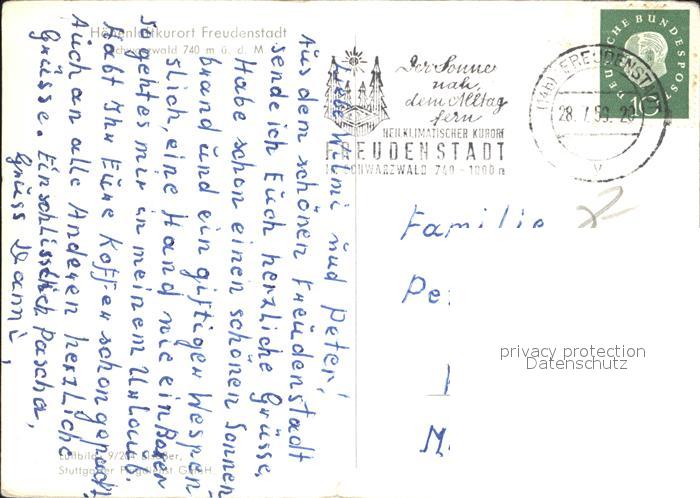 Höhenluftkurort Freudenstadt
Schwarzwald 740 m ü. d. M
Liebe Mimi und Peter!
Aus dem schönen Freudenstadt
sende ich Euch herzliche Grüsse,
Habe schon einen schönen Sonnen
brand und ein giftigen Wespen-
stich, eine Hand wie ein Boxer
So geht es mir in meinem Urlaub.
Habt Ihr Eure Koffer schon gepackt.
Auch an alle Anderen herzliche
Grüsse. Einschliesslich Pascha,
Gruss
Luftbild 9/204
Stuttgarter Flugdienst GmbH.
Der Sonne
nah,
dem Alltag
fern
HEILKLIMATISCHER KURORT
FREUDENSTADT
IM SCHWARZWALD 740 - 1000 m
(14b) FREUDENSTADT
28.7.59. 20
v
DEUTSCHE BUNDESPOST
10
Familie
Pe
M.
privacy protection
Datenschutz